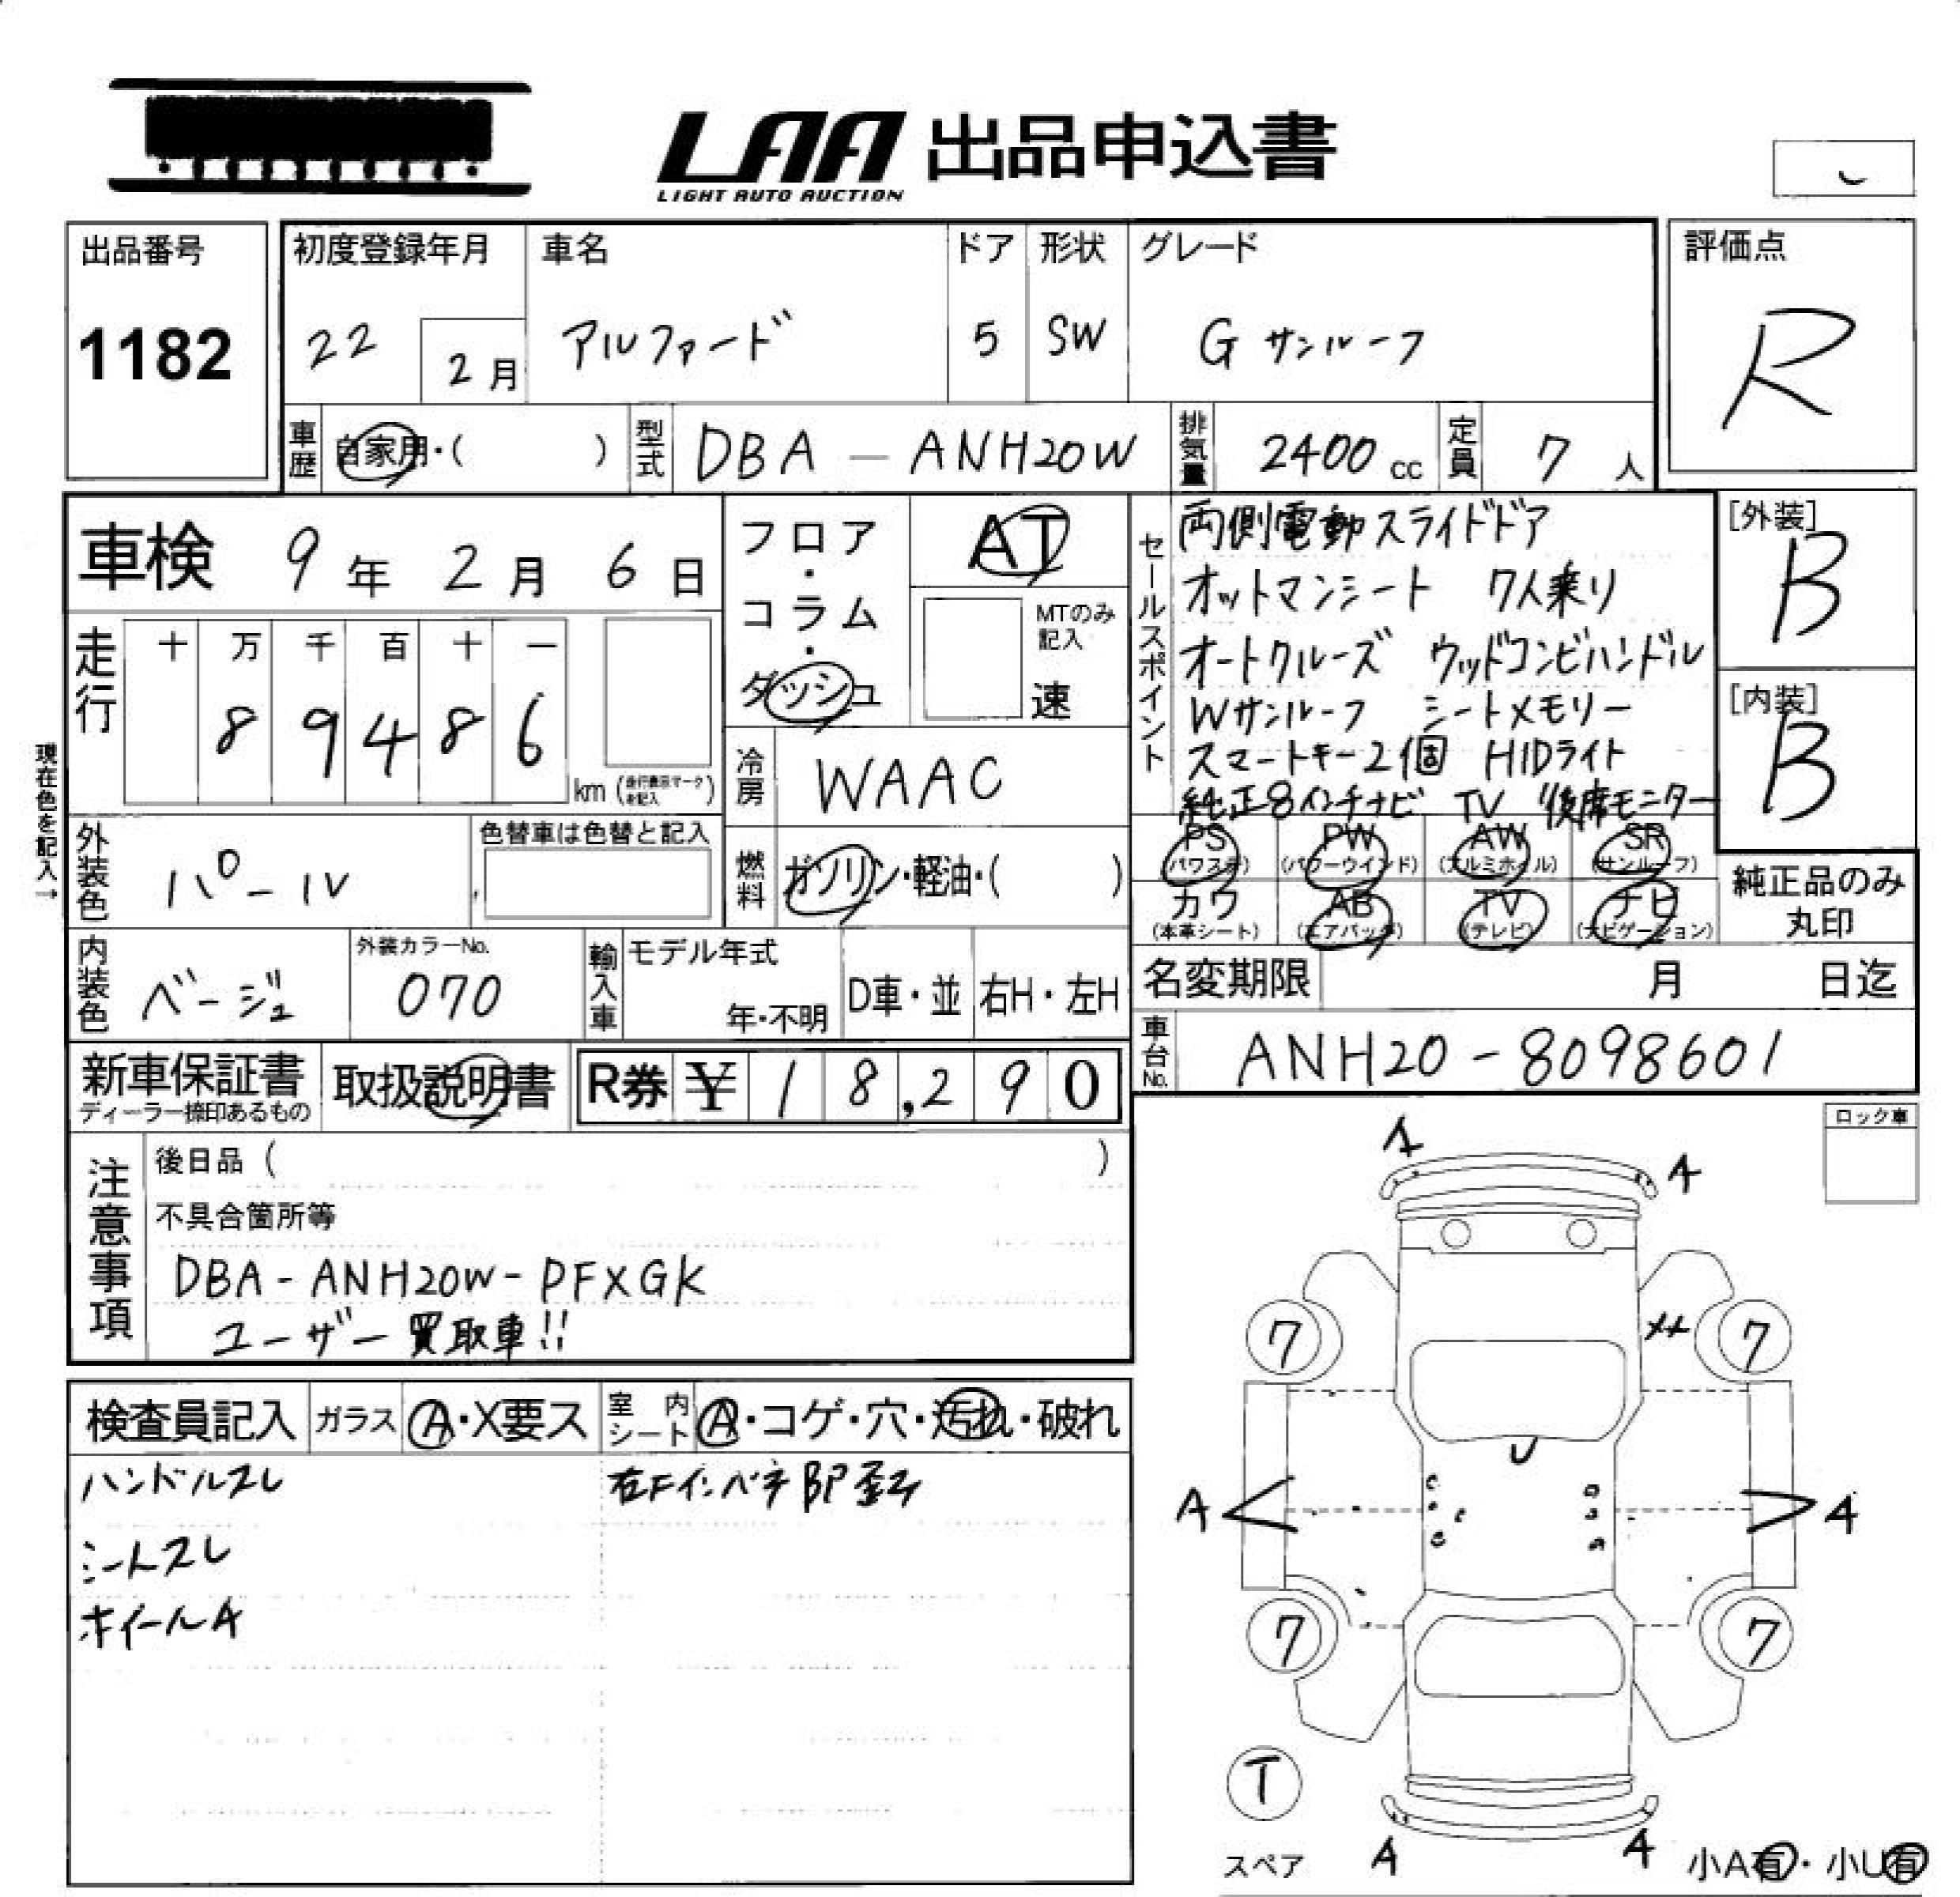 LAA 出品申込書
LIGHT AUTO AUCTION
出品番号
1182
初度登録年月
22
2月
車名
アルファード
ドア
5
形状
SW
グレード
G サンルーフ
評価点
R
車歴
自家用・( )
型式
DBA - ANH20W
排気量
2400cc
定員
7人
車検 9年 2月 6日
走行
十 万 千 百 十 一
8 9 4 8 6
km (走行表示マークを記入)
現在色を記入→
フロア・コラム・ダッシュ
AT
MTのみ記入
速
冷房
WAAC
燃料
ガソリン・軽油・( )
セールスポイント
両側電動スライドドア
オットマンシート 7人乗り
オートクルーズ ウッドコンビハンドル
Wサンルーフ シートメモリー
スマートキー2個 HIDライト
純正8インチナビ TV 後席モニター
[外装]
B
[内装]
B
PS (パワステ) PW (パワーウインド) AW (アルミホイル) SR (サンルーフ)
カワ (本革シート) AB (エアバック) TV (テレビ) ナビ (ナビゲーション)
純正品のみ
丸印
外装色
パール
色替車は色替と記入
内装色
ベージュ
外装カラーNo.
070
輸入車
モデル年式
年・不明
D車・並
右H・左H
名変期限 月 日迄
車台No.
ANH20-8098601
新車保証書
ディーラー捺印あるもの
取扱説明書
R券 ¥ 18,290
注意事項
後日品 ( )
不具合箇所等
DBA-ANH20W-PFXGK
ユーザー買取車!!
ロック車
検査員記入
ガラス A・X要ス
室内シート A・コゲ・穴・汚れ・破れ
ハンドルスレ
シートスレ
ホイールA
右Fインパネ部P歪み
A
A
7
XX
7
U
A
A
7
7
T
スペア
A
A
小A有・小U有